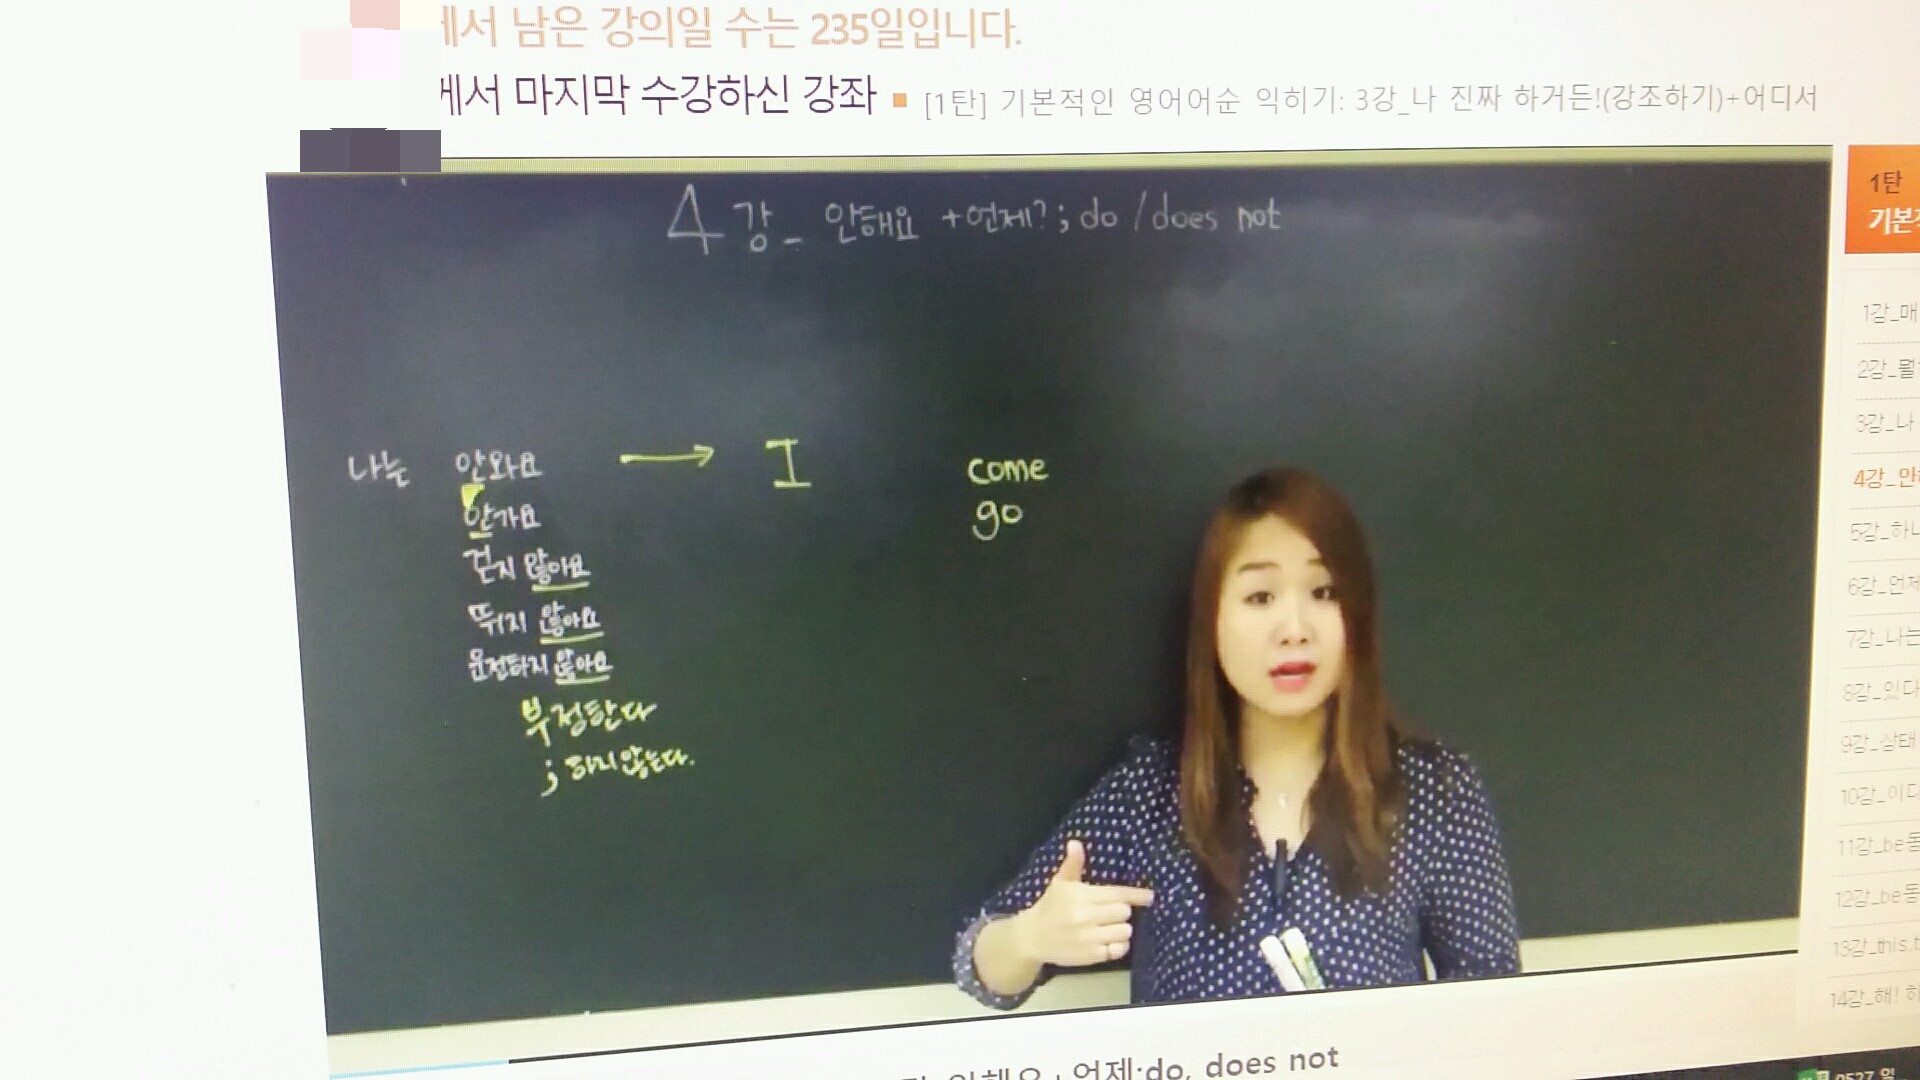 에서 남은 강의일 수는 235일입니다.
에서 마지막 수강하신 강좌 ■ [1탄] 기본적인 영어어순 익히기: 3강_나 진짜 하거든!(강조하기)+어디서
4강_ 안해요 +언제?; do / does not
나는 안와요 → I come
안가요 go
걷지 않아요
뛰지 않아요
운전하지 않아요
부정한다
; 하지 않는다.
1탄
기본
1강_매
2강_뭘
3강_나
4강_안
5강_하
6강_언제
7강_나는
8강_있다
9강_상태
10강_이
11강_be동
12강_be동
13강_this.t
14강_해! 하
안해요+언제;do, does not